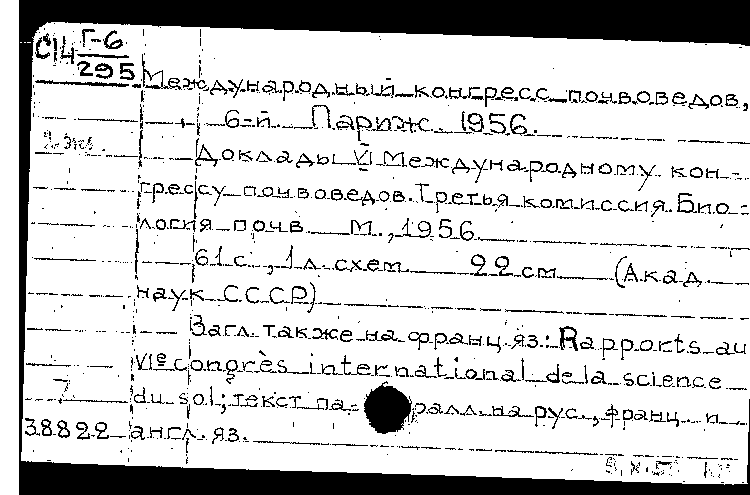 С14 Г-6
295
Международный конгресс почвоведов,
6-й. Париж. 1956.
2 экз.
Доклады VI Международному кон-
грессу почвоведов. Третья комиссия. Био-
логия почв. М., 1956.
61 с., 1 л. схем. 22 см. (Акад.
наук СССР)
Загл. также на франц. яз.: Rapports au
VIe congrès international de la science
du sol; текст па-ралл. на рус., франц. и
7
38822 англ. яз.